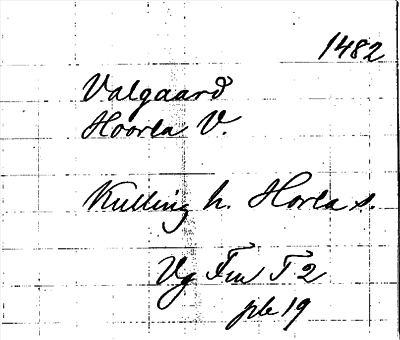 1482
Valgaard
Hoorla V.
Kulling h. Horla s.
Vg Fru T 2
pb 19